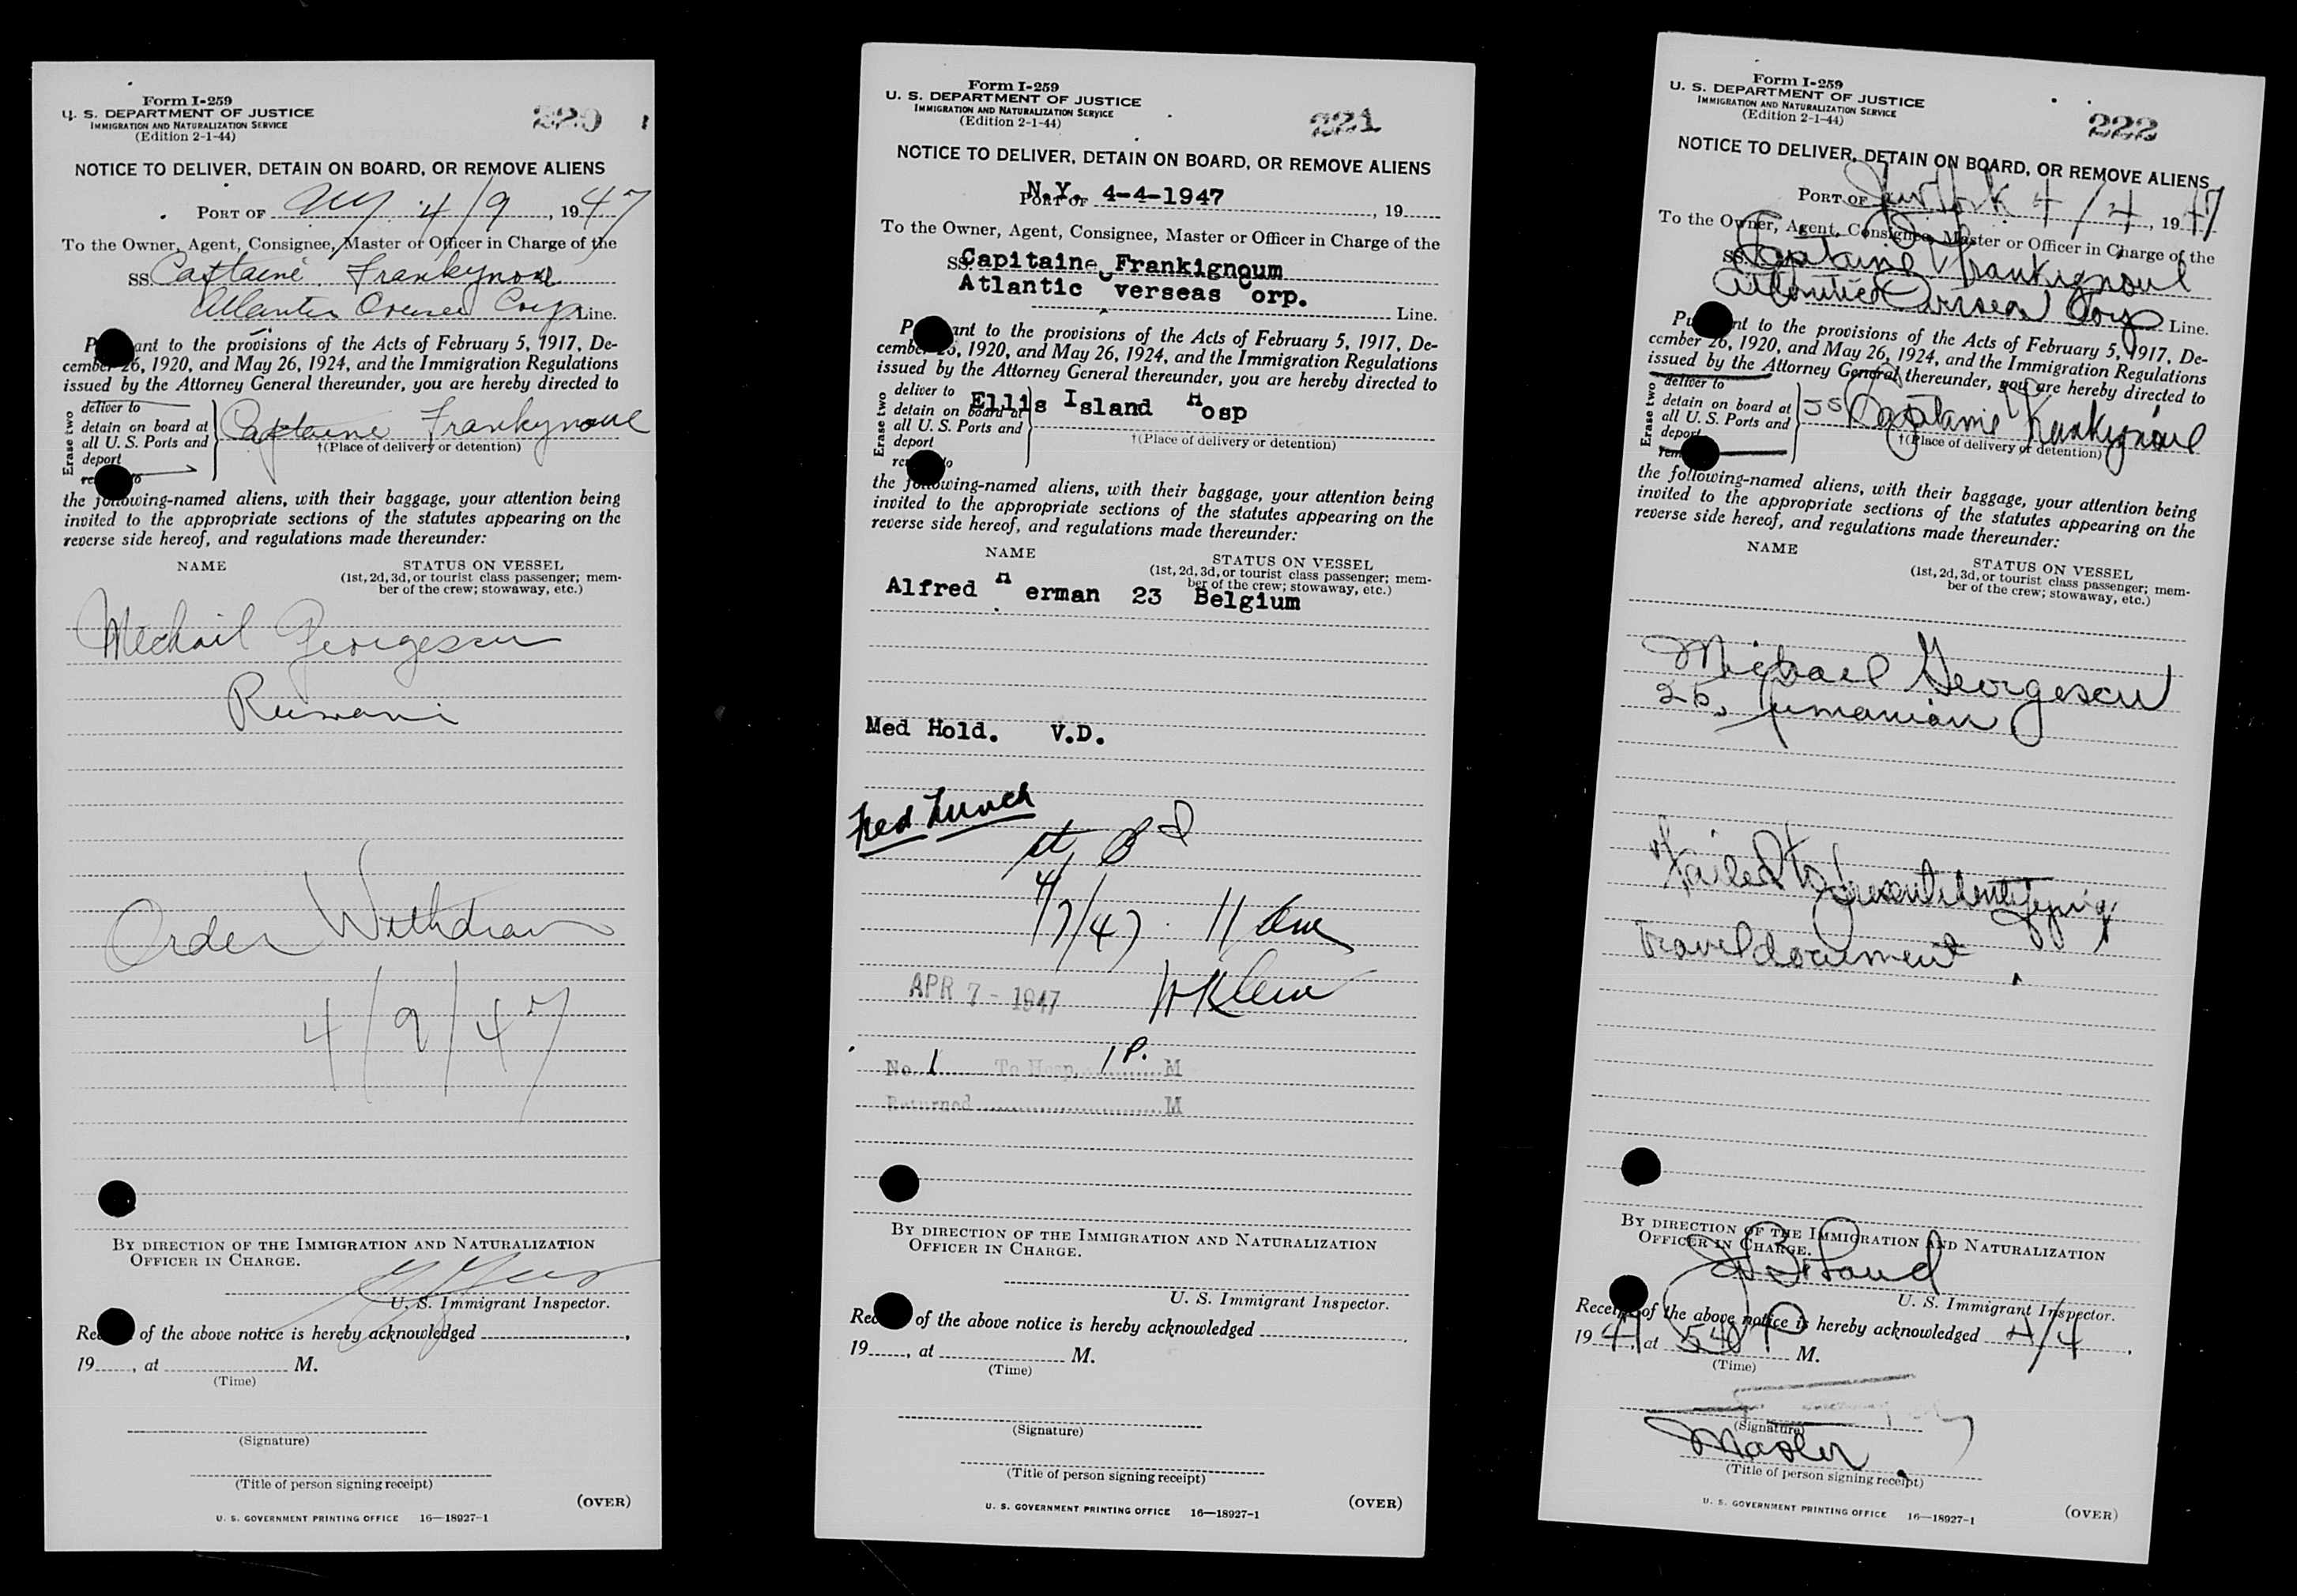 Form I-259
U. S. DEPARTMENT OF JUSTICE
IMMIGRATION AND NATURALIZATION SERVICE
(Edition 2-1-44)
220
NOTICE TO DELIVER, DETAIN ON BOARD, OR REMOVE ALIENS
PORT OF NY 4/9, 1947
To the Owner, Agent, Consignee, Master or Officer in Charge of the
SS. Captaine Frankynoul
Atlantic Overseas Corp Line.
P ant to the provisions of the Acts of February 5, 1917, De-
cember 26, 1920, and May 26, 1924, and the Immigration Regulations
issued by the Attorney General thereunder, you are hereby directed to
Erase two
deliver to
detain on board at
all U. S. Ports and
deport
Captaine Frankynoul
†(Place of delivery or detention)
the following-named aliens, with their baggage, your attention being
invited to the appropriate sections of the statutes appearing on the
reverse side hereof, and regulations made thereunder:
NAME
STATUS ON VESSEL
(1st, 2d, 3d, or tourist class passenger; mem-
ber of the crew; stowaway, etc.)
Mechail Georgescu
Rumani
Order Withdrawn
4/9/47
BY DIRECTION OF THE IMMIGRATION AND NATURALIZATION
OFFICER IN CHARGE.
U. S. Immigrant Inspector.
Rec of the above notice is hereby acknowledged
19 , at M.
(Time)
(Signature)
(Title of person signing receipt)
(OVER)
U. S. GOVERNMENT PRINTING OFFICE 16—18927-1
Form I-259
U. S. DEPARTMENT OF JUSTICE
IMMIGRATION AND NATURALIZATION SERVICE
(Edition 2-1-44)
221
NOTICE TO DELIVER, DETAIN ON BOARD, OR REMOVE ALIENS
PORT OF N.Y. 4-4-1947 , 19
To the Owner, Agent, Consignee, Master or Officer in Charge of the
SS. Capitaine Frankignoum
Atlantic Overseas Corp. Line.
P ant to the provisions of the Acts of February 5, 1917, De-
cember 26, 1920, and May 26, 1924, and the Immigration Regulations
issued by the Attorney General thereunder, you are hereby directed to
Erase two
deliver to
detain on board at
all U. S. Ports and
deport
Ellis Island Hosp
†(Place of delivery or detention)
the following-named aliens, with their baggage, your attention being
invited to the appropriate sections of the statutes appearing on the
reverse side hereof, and regulations made thereunder:
NAME
STATUS ON VESSEL
(1st, 2d, 3d, or tourist class passenger; mem-
ber of the crew; stowaway, etc.)
Alfred Herman 23 Belgium
Med Hold. V.D.
4/7/47 11 am
APR 7 - 1947 H Klein
No. 1 To Hosp. 1 P. M
Returned M
BY DIRECTION OF THE IMMIGRATION AND NATURALIZATION
OFFICER IN CHARGE.
U. S. Immigrant Inspector.
Rec of the above notice is hereby acknowledged
19 , at M.
(Time)
(Signature)
(Title of person signing receipt)
(OVER)
U. S. GOVERNMENT PRINTING OFFICE 16—18927-1
Form I-259
U. S. DEPARTMENT OF JUSTICE
IMMIGRATION AND NATURALIZATION SERVICE
(Edition 2-1-44)
222
NOTICE TO DELIVER, DETAIN ON BOARD, OR REMOVE ALIENS
PORT OF New York 4/4, 1947
To the Owner, Agent, Consignee, Master or Officer in Charge of the
SS. Capitaine Frankignoul
Atlantic Overseas Corp Line.
Pu nt to the provisions of the Acts of February 5, 1917, De-
cember 26, 1920, and May 26, 1924, and the Immigration Regulations
issued by the Attorney General thereunder, you are hereby directed to
Erase two
deliver to
detain on board at
all U. S. Ports and
deport
SS Captaine Frankignoul
†(Place of delivery or detention)
the following-named aliens, with their baggage, your attention being
invited to the appropriate sections of the statutes appearing on the
reverse side hereof, and regulations made thereunder:
NAME
STATUS ON VESSEL
(1st, 2d, 3d, or tourist class passenger; mem-
ber of the crew; stowaway, etc.)
Michael Georgescu
26, Rumanian
failed to present identifying
travel document
BY DIRECTION OF THE IMMIGRATION AND NATURALIZATION
OFFICER IN CHARGE.
U. S. Immigrant Inspector.
Receipt of the above notice is hereby acknowledged 4/4,
1947, at 540 P M.
(Time)
(Signature)
Master
(Title of person signing receipt)
(OVER)
U. S. GOVERNMENT PRINTING OFFICE 16—18927-1